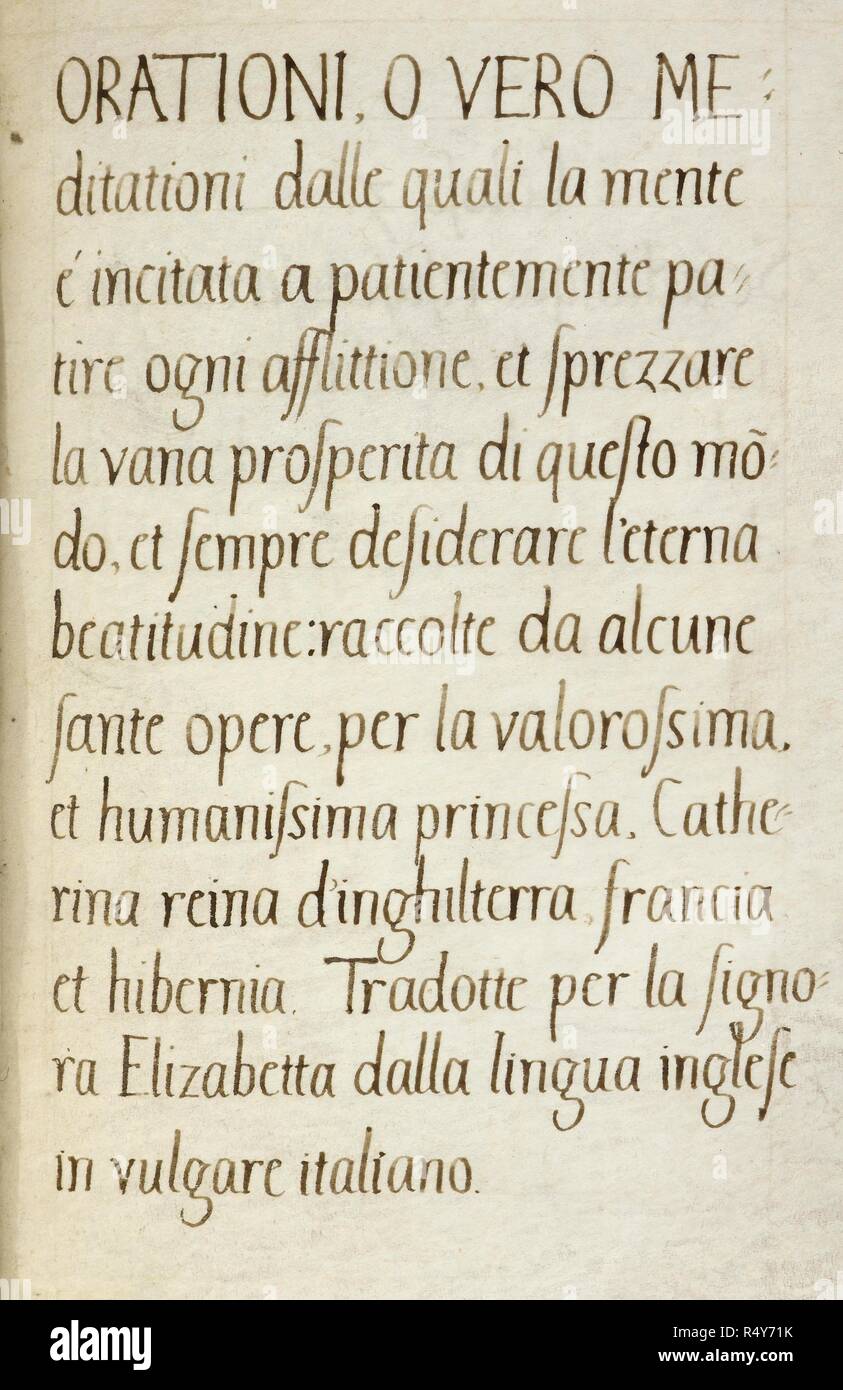 ORATIONI, O VERO ME⸗
ditationi dalle quali la mente
é incitata a patientemente pa⸗
tire ogni afflittione, et ſprezzare
la vana proſperita di queſto mõ⸗
do, et ſempre deſiderare l'eterna
beatitudine: raccolte da alcune
ſante opere, per la valoroſsima,
et humaniſsima princeſsa, Cathe⸗
rina reina d'inghilterra, francia
et hibernia. Tradotte per la ſigno⸗
ra Elizabetta dalla lingua ingleſe
in vulgare italiano.
alamy
Image ID: R4Y71K
www.alamy.com